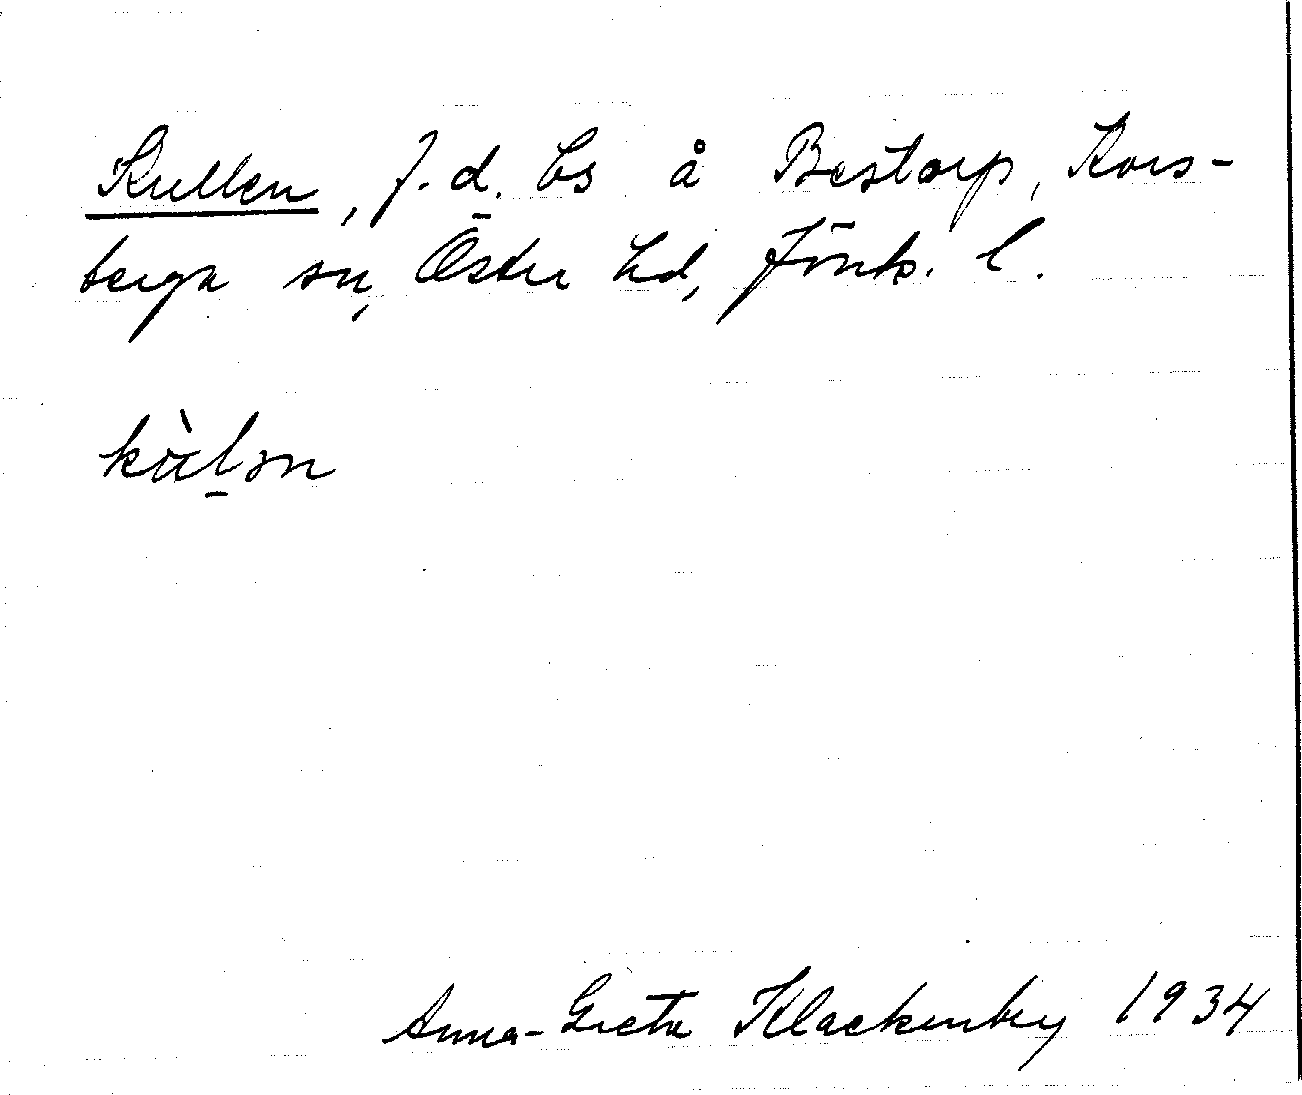 Kullen, f.d. bs å Bestorp, Kors-
berga sn, Östra hd, Jönk. l.
Anna-Greta Klackenberg 1934